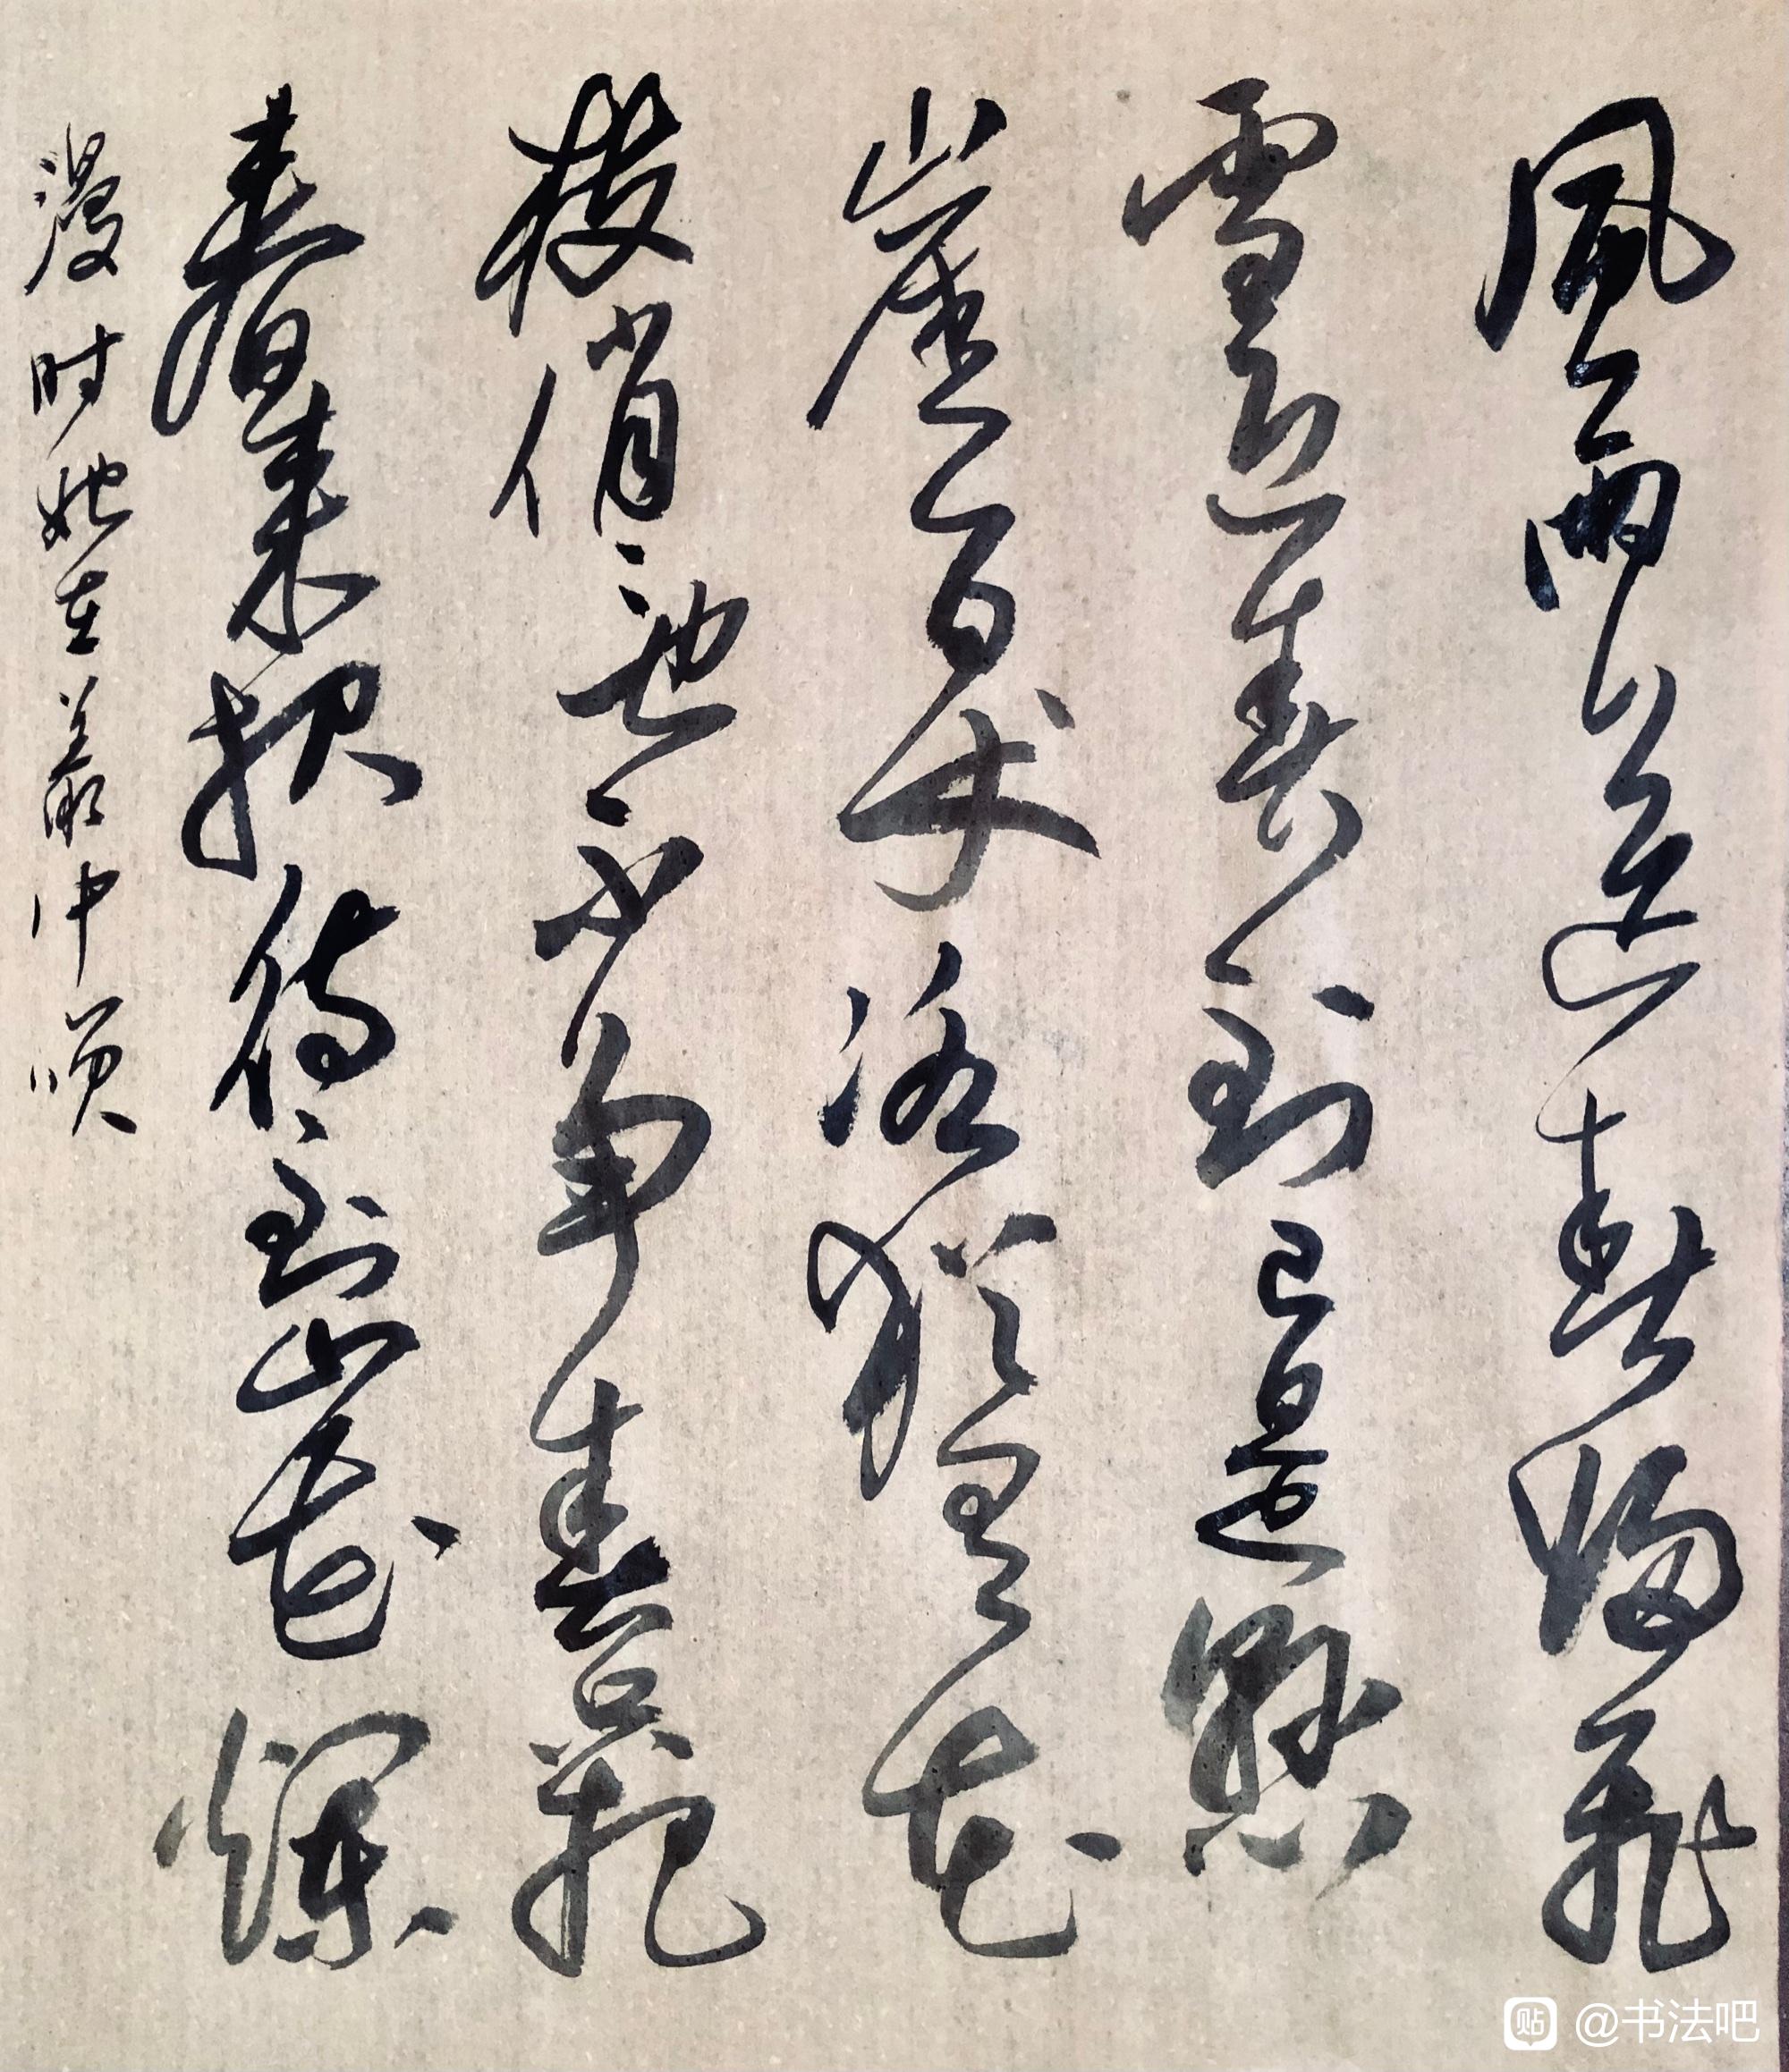 風雨送春歸飛
雪迎春到已是懸
崖百丈冰猶有花
枝俏〻也不争春只把
春来报待到山花爛
漫时她在叢中咲
贴 @书法吧